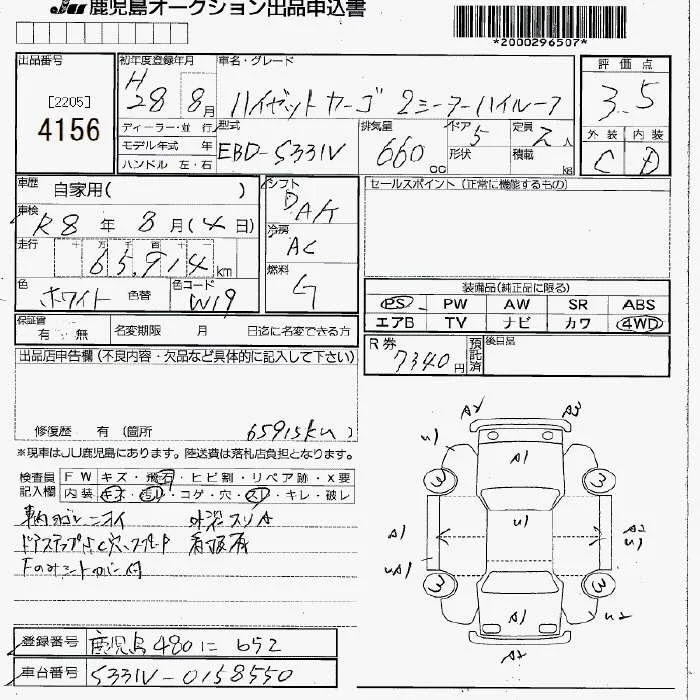 JU 鹿児島オークション出品申込書
*2000296507*
出品番号
[2205]
4156
初年度登録年月
H 28 8月
車名・グレード
ハイゼットカーゴ 2シーターハイルーフ
評価点
3.5
外装 内装
C D
ディーラー・並行
モデル年式 年
ハンドル 左・右
型式
EBD-S331V
排気量
660 cc
ドア 5
形状
定員 2人
積載 kg
車歴 自家用( )
車検
R8年 8月(4日)
走行
十 万 千 百 十 一
65,914 km
色 ホワイト 色替
色コード W19
シフト
DAK
冷房
AC
燃料
G
セールスポイント(正常に機能するもの)
装備品(純正品に限る)
PS PW AW SR ABS
エアB TV ナビ カワ 4WD
保証書
有・無
名変期限 月 日迄に名変できる方
R券 7340円
預託済
後日品
出品店申告欄(不良内容・欠品など具体的に記入して下さい)
修復歴 有(箇所 65915km)
※現車はJU鹿児島にあります。陸送費は落札店負担となります。
検査員記入欄
FW キズ・飛石・ヒビ割・リペア跡・X要
内装 キズ・汚レ・コゲ・穴・スレ・キレ・破レ
車内ヨゴレ ニオイ 外装スリキズ
ドアステップ
登録番号 鹿児島480に652
車台番号 S331V-0158550
A2 A3
U1 A1
3 3
A1 U1 A2 U1
UA1
3 3
A1 U2
A2